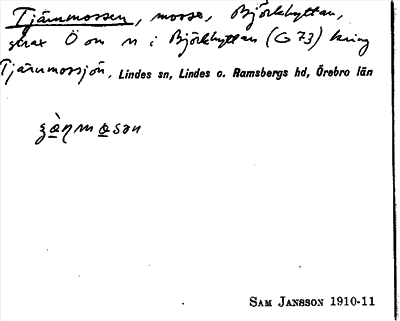 Tjärnmossen, mosse, Björkhyttan,
strax Ö om n i Björkhyttan (G 73) kring
Tjärnmossjön, Lindes sn, Lindes o. Ramsbergs hd, Örebro län
SAM JANSSON 1910-11